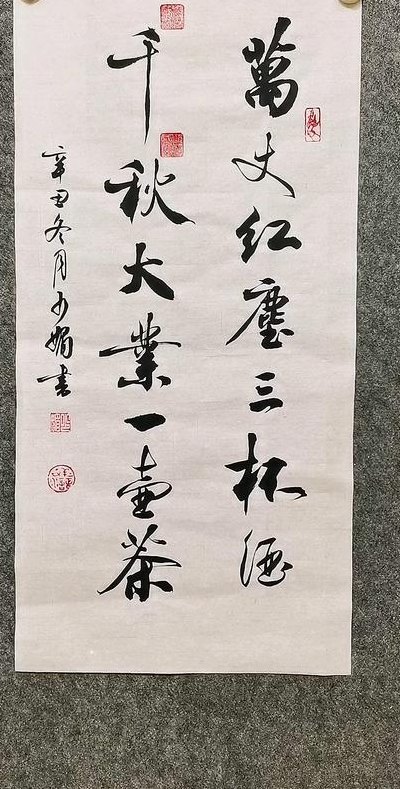 萬丈紅塵三杯酒
千秋大業一壺茶
辛丑冬月少娟書